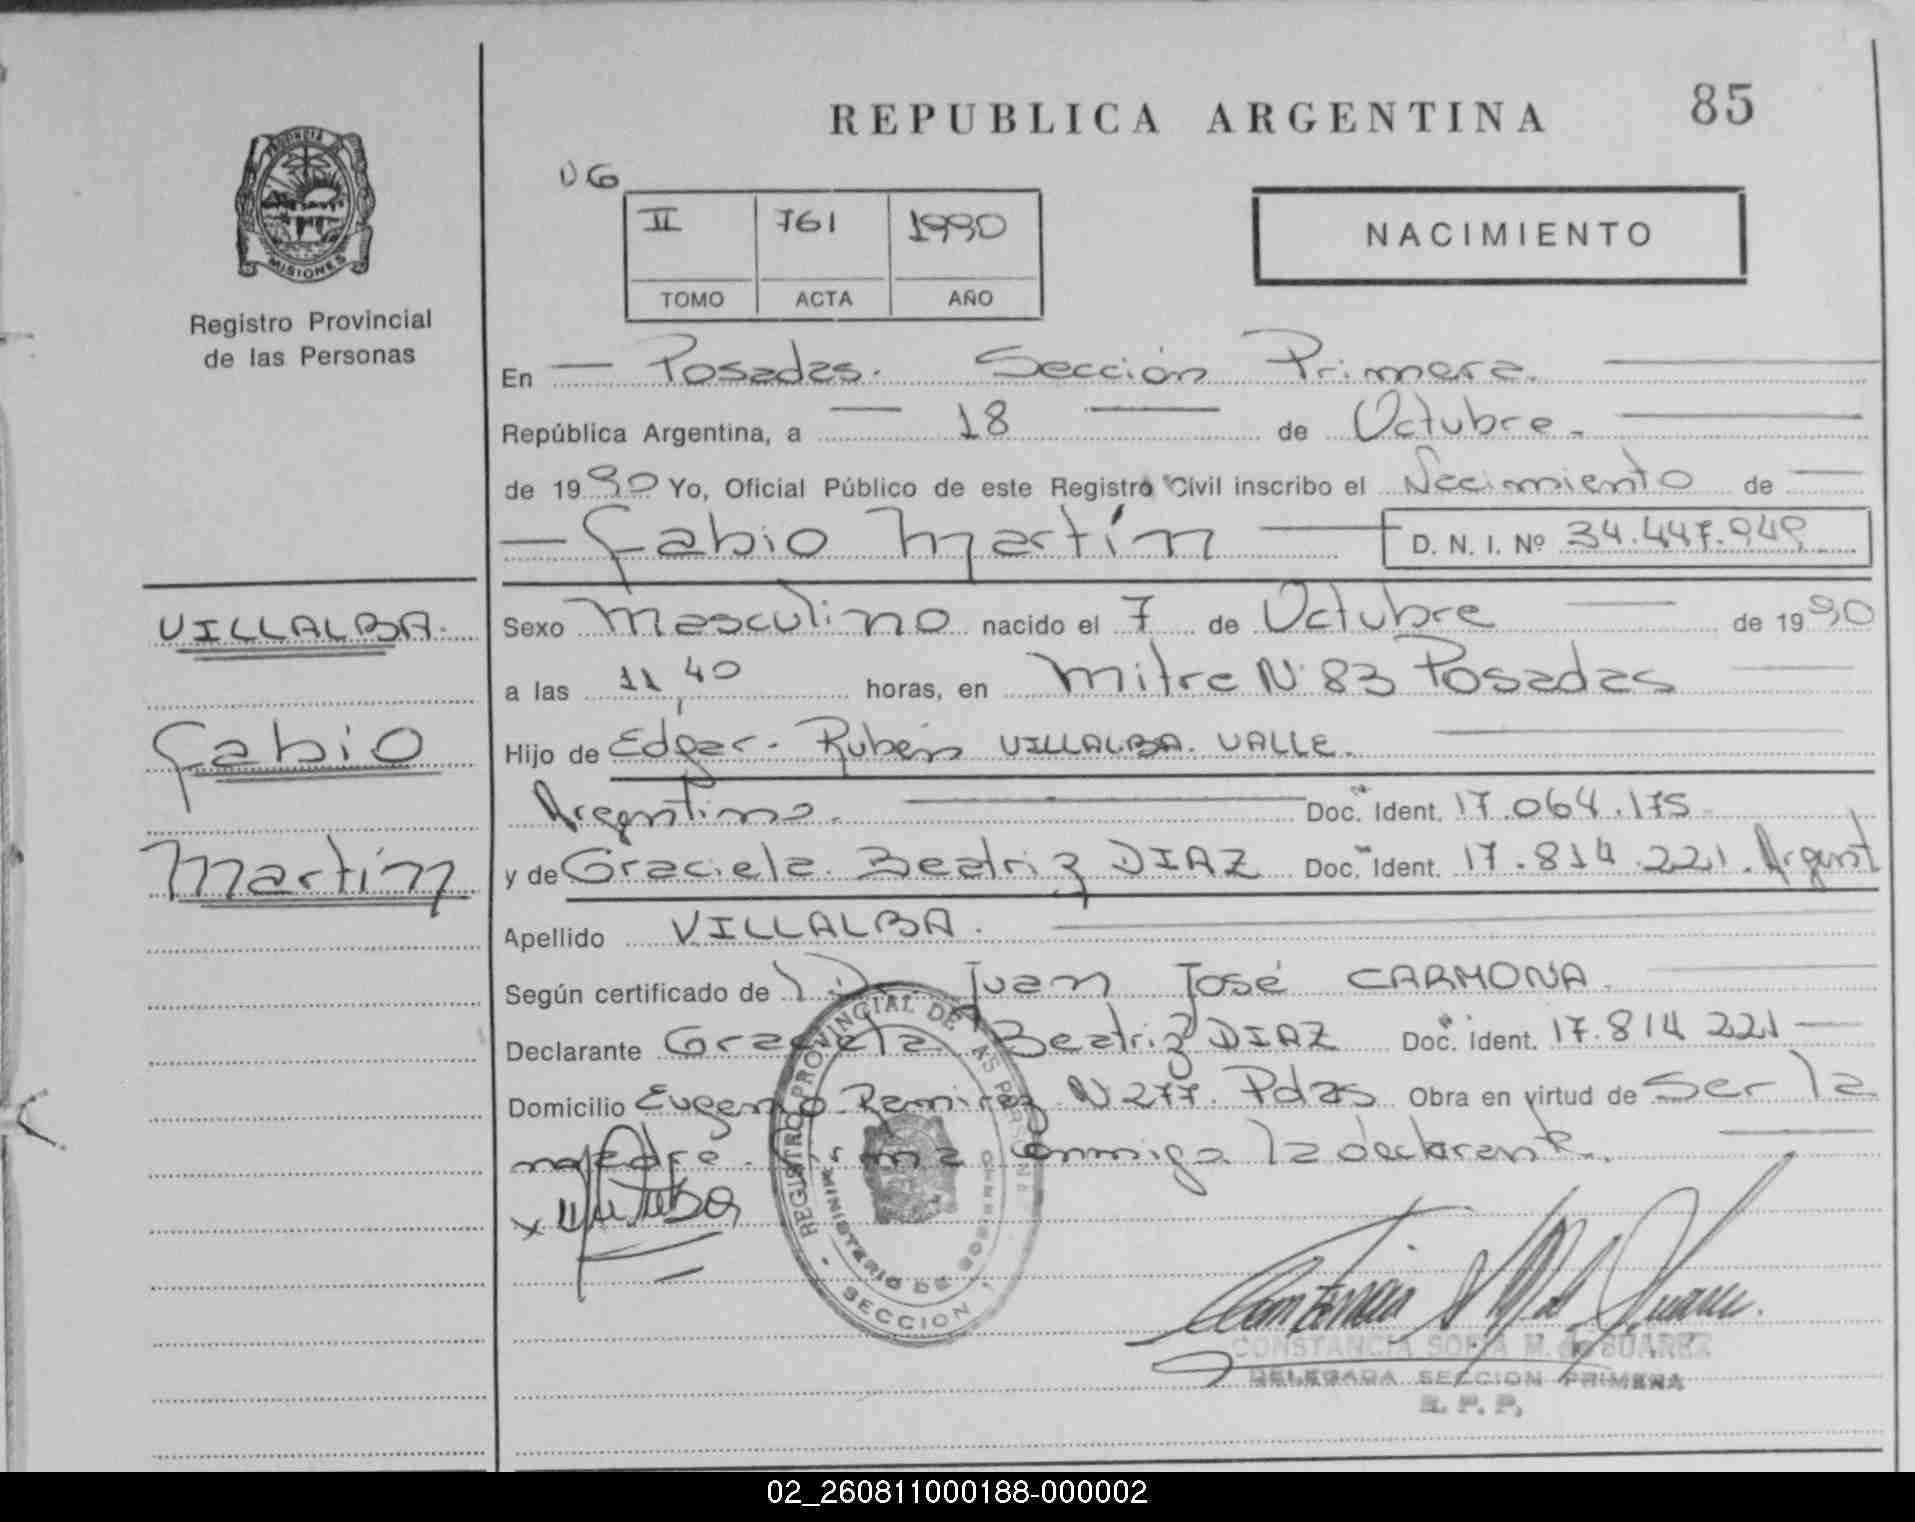 REPUBLICA ARGENTINA
85
PROVINCIA
MISIONES
Registro Provincial
de las Personas
II 761 1990
TOMO ACTA AÑO
NACIMIENTO
En Posadas. Sección Primera.
República Argentina, a 18 de Octubre.
de 1990 Yo, Oficial Público de este Registro Civil inscribo el Nacimiento de
Fabio Martín D. N. I. Nº 34.447.949
VILLALBA.
Fabio
Martín
Sexo Masculino nacido el 7 de Octubre de 1990
a las 11,40 horas, en Mitre Nº 83 Posadas
Hijo de Edgar. Rubén VILLALBA. VALLE.
Argentino. Doc. Ident. 17.064.175
y de Graciela. Beatriz DIAZ Doc. Ident. 17.814.221. Argent
Apellido VILLALBA.
Según certificado de Dr Juan José CARMONA.
Declarante Graciela Beatriz DIAZ Doc. Ident. 17.814 221
Domicilio Eugenio Ramirez Nº 277. Pdas Obra en virtud de Ser la
madre. Firma Conmigo la declarante.
REGISTRO PROVINCIAL DE LAS PERSONAS
MINISTERIO DE GOBIERNO
SECCION 1
CONSTANCIA SOFIA M. de SUAREZ
DELEGADA SECCION PRIMERA
R. P. P.
02_260811000188-000002